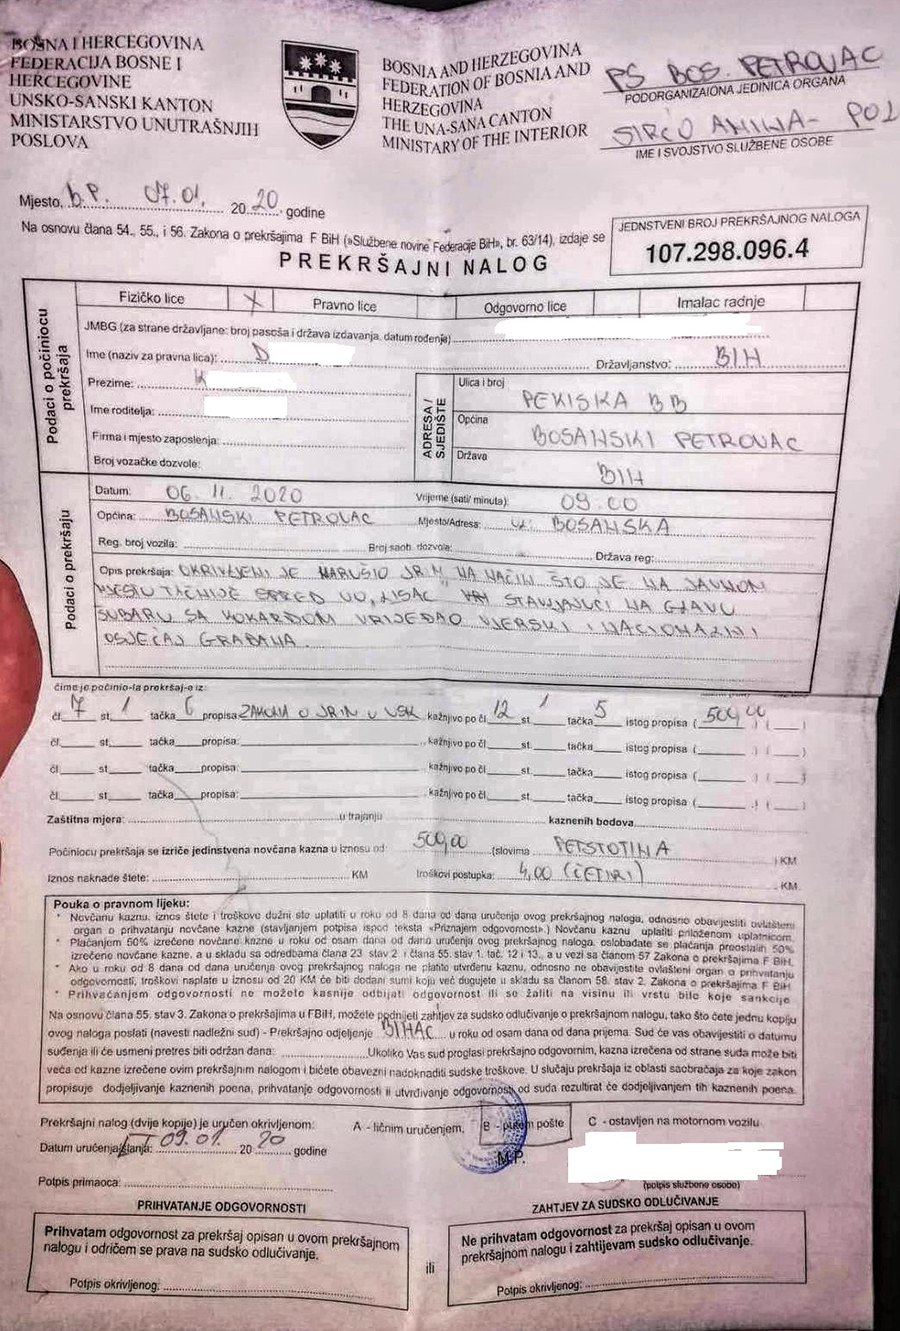 BOSNA I HERCEGOVINA
FEDERACIJA BOSNE I
HERCEGOVINE
UNSKO-SANSKI KANTON
MINISTARSTVO UNUTRAŠNJIH
POSLOVA
BOSNIA AND HERZEGOVINA
FEDERATION OF BOSNIA AND
HERZEGOVINA
THE UNA-SANA CANTON
MINISTRY OF THE INTERIOR
PS BOS. PETROVAC
PODORGANIZAIONA JEDINICA ORGANA
SIRĆO AMINA - POL
IME I SVOJSTVO SLUŽBENE OSOBE
Mjesto, b.P. 07.01. 20 20 godine
Na osnovu člana 54., 55., i 56. Zakona o prekršajima F BiH (»Službene novine Federacije BiH«, br. 63/14), izdaje se
JEDNSTVENI BROJ PREKRŠAJNOG NALOGA
107.298.096.4
PREKRŠAJNI NALOG
Podaci o počiniocu prekršaja
Fizičko lice X Pravno lice Odgovorno lice Imalac radnje
JMBG (za strane državljane: broj pasoša i država izdavanja, datum rođenja)
Ime (naziv za pravna lica): D Državljanstvo: BIH
Prezime: K
Ime roditelja:
Firma i mjesto zaposlenja:
Broj vozačke dozvole:
ADRESA / SJEDIŠTE
Ulica i broj
PEKISKA BB
Općina
BOSANSKI PETROVAC
Država
BIH
Podaci o prekršaju
Datum: 06. 11. 2020 Vrijeme (sati/ minuta): 09.00
Općina: BOSANSKI PETROVAC Mjesto/Adresa: ul. BOSANSKA
Reg. broj vozila: Broj saob. dozvole: Država reg:
Opis prekršaja: OKRIVLJENI JE NARUŠIO JRIM NA NAČIN ŠTO JE NA JAVNOM
MJESTU TAČNIJE ISPRED UO, LISAC STAVLJAJUĆI NA GLAVU
ŠUBARU SA KOKARDOM VRIJEĐAO VJERSKI I NACIONALNI
OSJEĆAJ GRAĐANA
čime je počinio-la prekršaj-e iz:
čl. 7 st. 1 tačka 6 propisa ZAKONA O JRIM U USK kažnjivo po čl. 12 st. 1 tačka 5 istog propisa ( 500,00 ) ( )
čl. st. tačka propisa: kažnjivo po čl. st. tačka istog propisa ( ) ( )
čl. st. tačka propisa: kažnjivo po čl. st. tačka istog propisa ( ) ( )
čl. st. tačka propisa: kažnjivo po čl. st. tačka istog propisa ( ) ( )
Zaštitna mjera: u trajanju kaznenih bodova
Počiniocu prekršaja se izriče jedinstvena novčana kazna u iznosu od 500,00 (slovima PETSTOTINA ) KM
Iznos naknade štete: KM troškovi postupka: 4,00 (ČETIRI) KM.
Pouka o pravnom lijeku:
* Novčanu kaznu, iznos štete i troškove dužni ste uplatiti u roku od 8 dana od dana uručenja ovog prekršajnog naloga, odnosno obavijestiti ovlašteni
organ o prihvatanju novčane kazne (stavljanjem potpisa ispod teksta «Priznajem odgovornost».) Novčanu kaznu uplatiti priloženom uplatnicom.
* Plaćanjem 50% izrečene novčane kazne u roku od osam dana od dana uručenja ovog prekršajnog naloga, oslobađate se plaćanja preostalih 50%
izrečene novčane kazne, a u skladu sa odredbama člana 23 stav 2 i člana 55 stav 1. tač. 12 i 13., a u vezi sa članom 57 Zakona o prekršajima F BiH.
* Ako u roku od 8 dana od dana uručenja ovog prekršajnog naloga ne platite utvrđenu kaznu, odnosno ne obavijestite ovlašteni organ o prihvatanju
odgovornosti, troškovi naplate u iznosu od 20 KM će biti dodani sumi koju već dugujete u skladu sa članom 58. stav 2. Zakona o prekršajima F BiH
* Prihvaćanjem odgovornosti ne možete kasnije odbijati odgovornost ili se žaliti na visinu ili vrstu bilo koje sankcije
Na osnovu člana 55. stav 3. Zakona o prekršajima u FBiH, možete podnijeti zahtjev za sudsko odlučivanje o prekršajnom nalogu, tako što ćete jednu kopiju
ovog naloga poslati (navesti nadležni sud) - Prekršajno odjeljenje BIHAĆ u roku od osam dana od dana prijema. Sud će vas obavijestiti o datumu
suđenja ili će usmeni pretres biti održan dana: Ukoliko Vas sud proglasi prekršajno odgovornim, kazna izrečena od strane suda može biti
veća od kazne izrečene ovim prekršajnim nalogom i bićete obavezni nadoknaditi sudske troškove. U slučaju prekršaja iz oblasti saobraćaja za koje zakon
propisuje dodjeljivanje kaznenih poena, prihvatanje odgovornosti ili utvrđivanje odgovornosti od suda rezultirat će dodjeljivanjem tih kaznenih poena.
Prekršajni nalog (dvije kopije) je uručen okrivljenom: A - ličnim uručenjem, B - putem pošte C - ostavljen na motornom vozilu
Datum uručenja/slanja: 09.01. 20 20 godine
M.P.
Potpis primaoca:
(potpis službene osobe)
PRIHVATANJE ODGOVORNOSTI
Prihvatam odgovornost za prekršaj opisan u ovom prekršajnom
nalogu i odričem se prava na sudsko odlučivanje.
Potpis okrivljenog:
ili
ZAHTJEV ZA SUDSKO ODLUČIVANJE
Ne prihvatam odgovornost za prekršaj opisan u ovom
prekršajnom nalogu i zahtijevam sudsko odlučivanje.
Potpis okrivljenog: